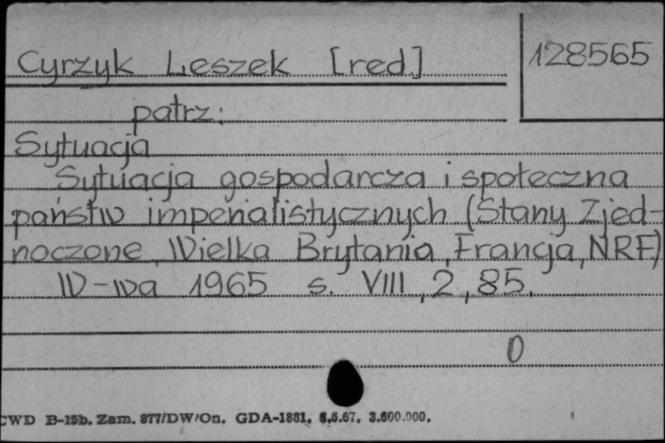 Cyrzyk Leszek [red.] 128565
patrz:
Sytuacja
Sytuacja gospodarcza i społeczna
państw imperialistycznych (Stany Zjed-
noczone, Wielka Brytania, Francja, NRF)
W-wa 1965 s. VIII, 2, 85.
0
CWD B-15b. Zam. 877/DW/On. GDA-1881. 6.6.67. 3.600.000.